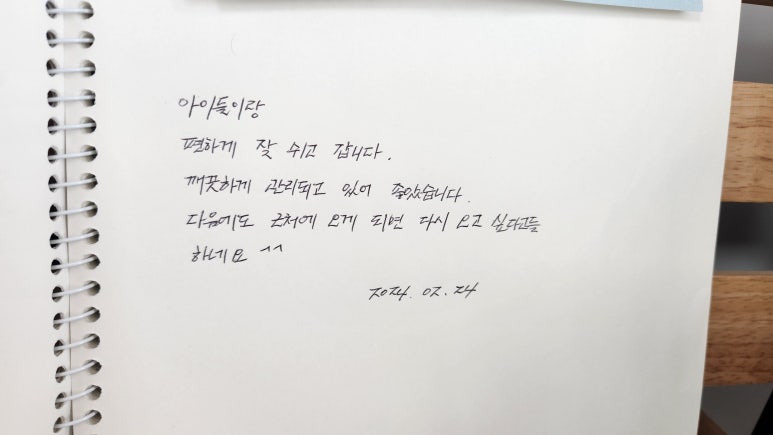 아이들이랑
편하게 잘 쉬고 갑니다.
깨끗하게 관리되고 있어 좋았습니다.
다음에도 근처에 오게 되면 다시 오고 싶다고들
하네요 ^^
2024. 02. 24